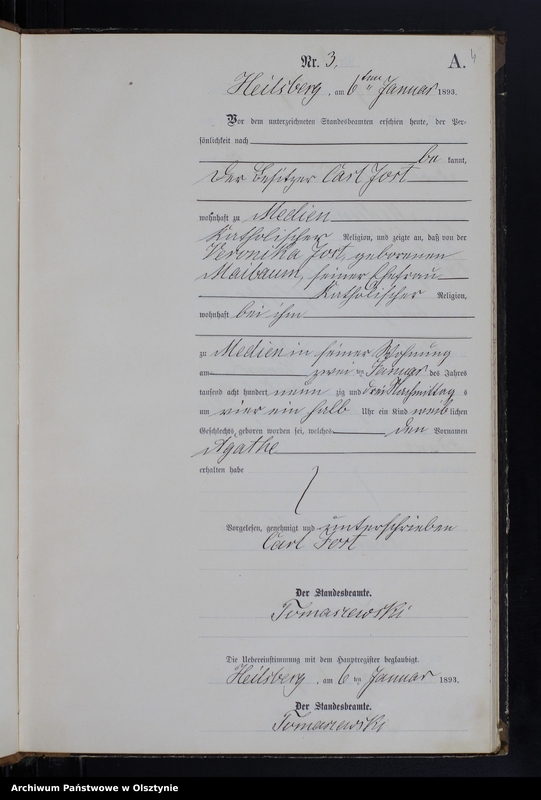 Nr. 3.
A.
4
Heilsberg, am 6ten Januar 1893.
Vor dem unterzeichneten Standesbeamten erschien heute, der Per-
sönlichkeit nach
be kannt,
der Besitzer Carl Jort
wohnhaft zu Medien
katholischer Religion, und zeigte an, daß von der
Veronika Jort, geborenen
Maibaum, seiner Ehefrau
Katholischer Religion,
wohnhaft bei ihm
zu Medien in seiner Wohnung
am zwei ten Januar des Jahres
tausend acht hundert neun zig und drei Nachmittag s
um vier ein halb Uhr ein Kind weib lichen
Geschlechts geboren worden sei, welches den Vornamen
Agathe
erhalten habe
Vorgelesen, genehmigt und unterschrieben
Carl Jort
Der Standesbeamte.
Tomaszewski
Die Uebereinstimmung mit dem Hauptregister beglaubigt.
Heilsberg, am 6ten Januar 1893.
Der Standesbeamte.
Tomaszewski
Archiwum Państwowe w Olsztynie